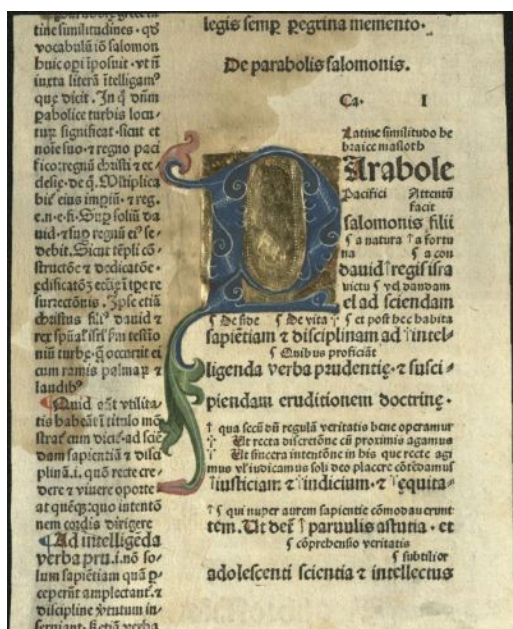 tine similitudines · qd
vocabulū iō salomon
huic opi īposuit · vt ñ
iuxta literā ītelligam⁹
que dicit . In q̄ dn̄m
pabolice turbis locu-
tur significat · sicut et
noīe suo · ⁊ regno paci
fico: regnū christi ⁊ ec
clesie · de q̄ . Mltiplica
bit̄ eius impiū · ⁊ reg.
debit . Sicut tēpli cō-
structōe ⁊ dedicatōe ·
surrectōnis . Ipse etiā
christus fili⁹ dauid ⁊
cum ramis palmar̄ ⁊
laudib⁹
¶ Quid aūt vtilita-
tis habeāt ī titulo mō
strat cum dicit · ad sciē
dam sapientiā ⁊ disci
plinā .i. quo recte cre-
dere ⁊ viuere oporte
at quēq; quo intentō
nem cordis dirigere
¶ Ad intelligēda
verba pru .i. nō so-
lum sapiētiam quā p-
ceperūt amplectant̄ · ⁊
discipline v̄tutum in-
seruiant · ß etiā verba
legis semp̄ p̱egrina memento ·
De parabolis salomonis.
Ca · I
Latine similitudo he
braice masloth
PArabole
Pacifici Attentū
facit
salomonis filii
ʃ a natura † a fortu
na ʃ a con
dauid † regis isra
victu ʃ vel dandam
el ad sciendam
ʃ De fide ʃ De vita † ʃ et post hec habita
sapiētiam ⁊ disciplinam ad † intel-
ʃ Quibus proficiāt
ligenda verba prudentię · ⁊ susci-
piendam eruditionem doctrinę ·
† qua secū dn̄ regulā veritatis bene operamur
† Ut recta discretōne cū proximis agamus
† Ut sincera intentōne in his que recte agi
mus vl̄ iudicamus soli deo placere cōtēdamus
† iusticiam · ⁊ † indicium · ⁊ † equita-
† ʃ qui nuper aurem sapientie cōmodauerunt
tem . Ut det̄ † paruulis astutia · et
ʃ cōprehensio veritatis
ʃ subtilior
adolescenti scientia ⁊ intellectus